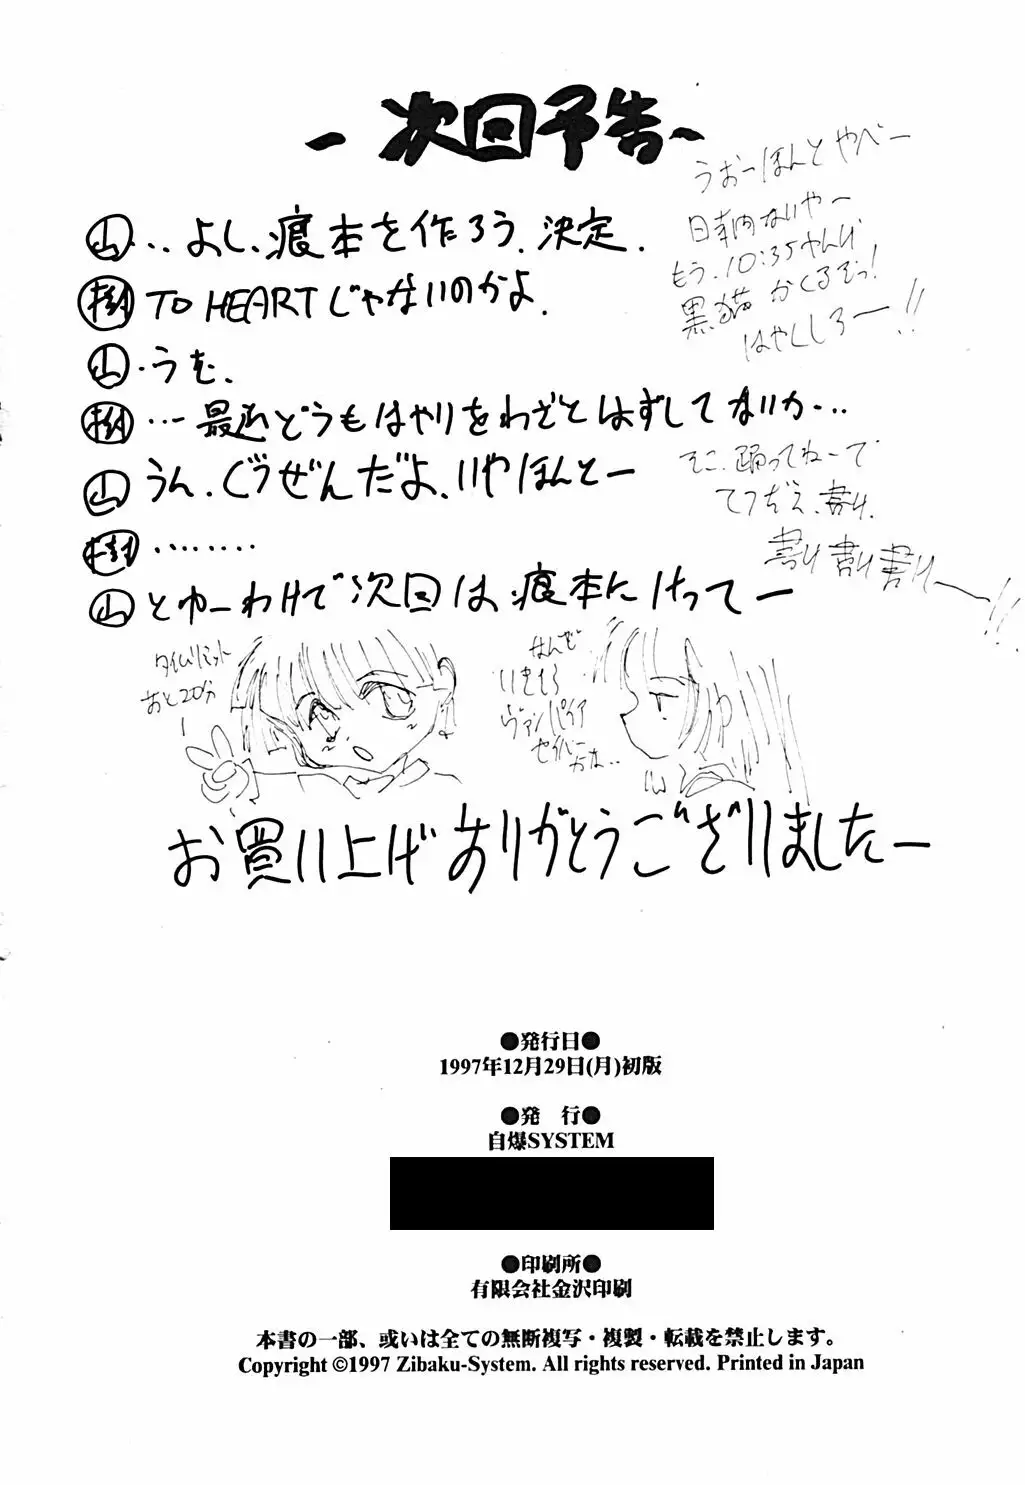 - 次回予告~
山 ‥よし、痕本を作ろう、決定.
樹 TO HEARTじゃないのかよ.
山 ・うむ、
樹 …最近どうもはやりをわざとはずしてないか…
山 うん、ぐうぜんだよ、いやほんとー
樹 ‥‥‥‥
山 とゆーわけで次回は、痕本にけってー
うおーほんとやべー
もう、10:35やんけ
黒猫がくるぞっ!
はやくしろー!!
そこ、踊ってねーで
てつだえ、書け、
書け書け書けー!!
タイムリミット
あと20分
なんで
いきなり
ヴァンパイア
セイバー
かな‥
お買い上げありがとうございましたー
●発行日●
1997年12月29日(月)初版
●発 行●
自爆SYSTEM
●印刷所●
有限会社金沢印刷
本書の一部、或いは全ての無断複写・複製・転載を禁止します。
Copyright ©1997 Zibaku-System. All rights reserved. Printed in Japan